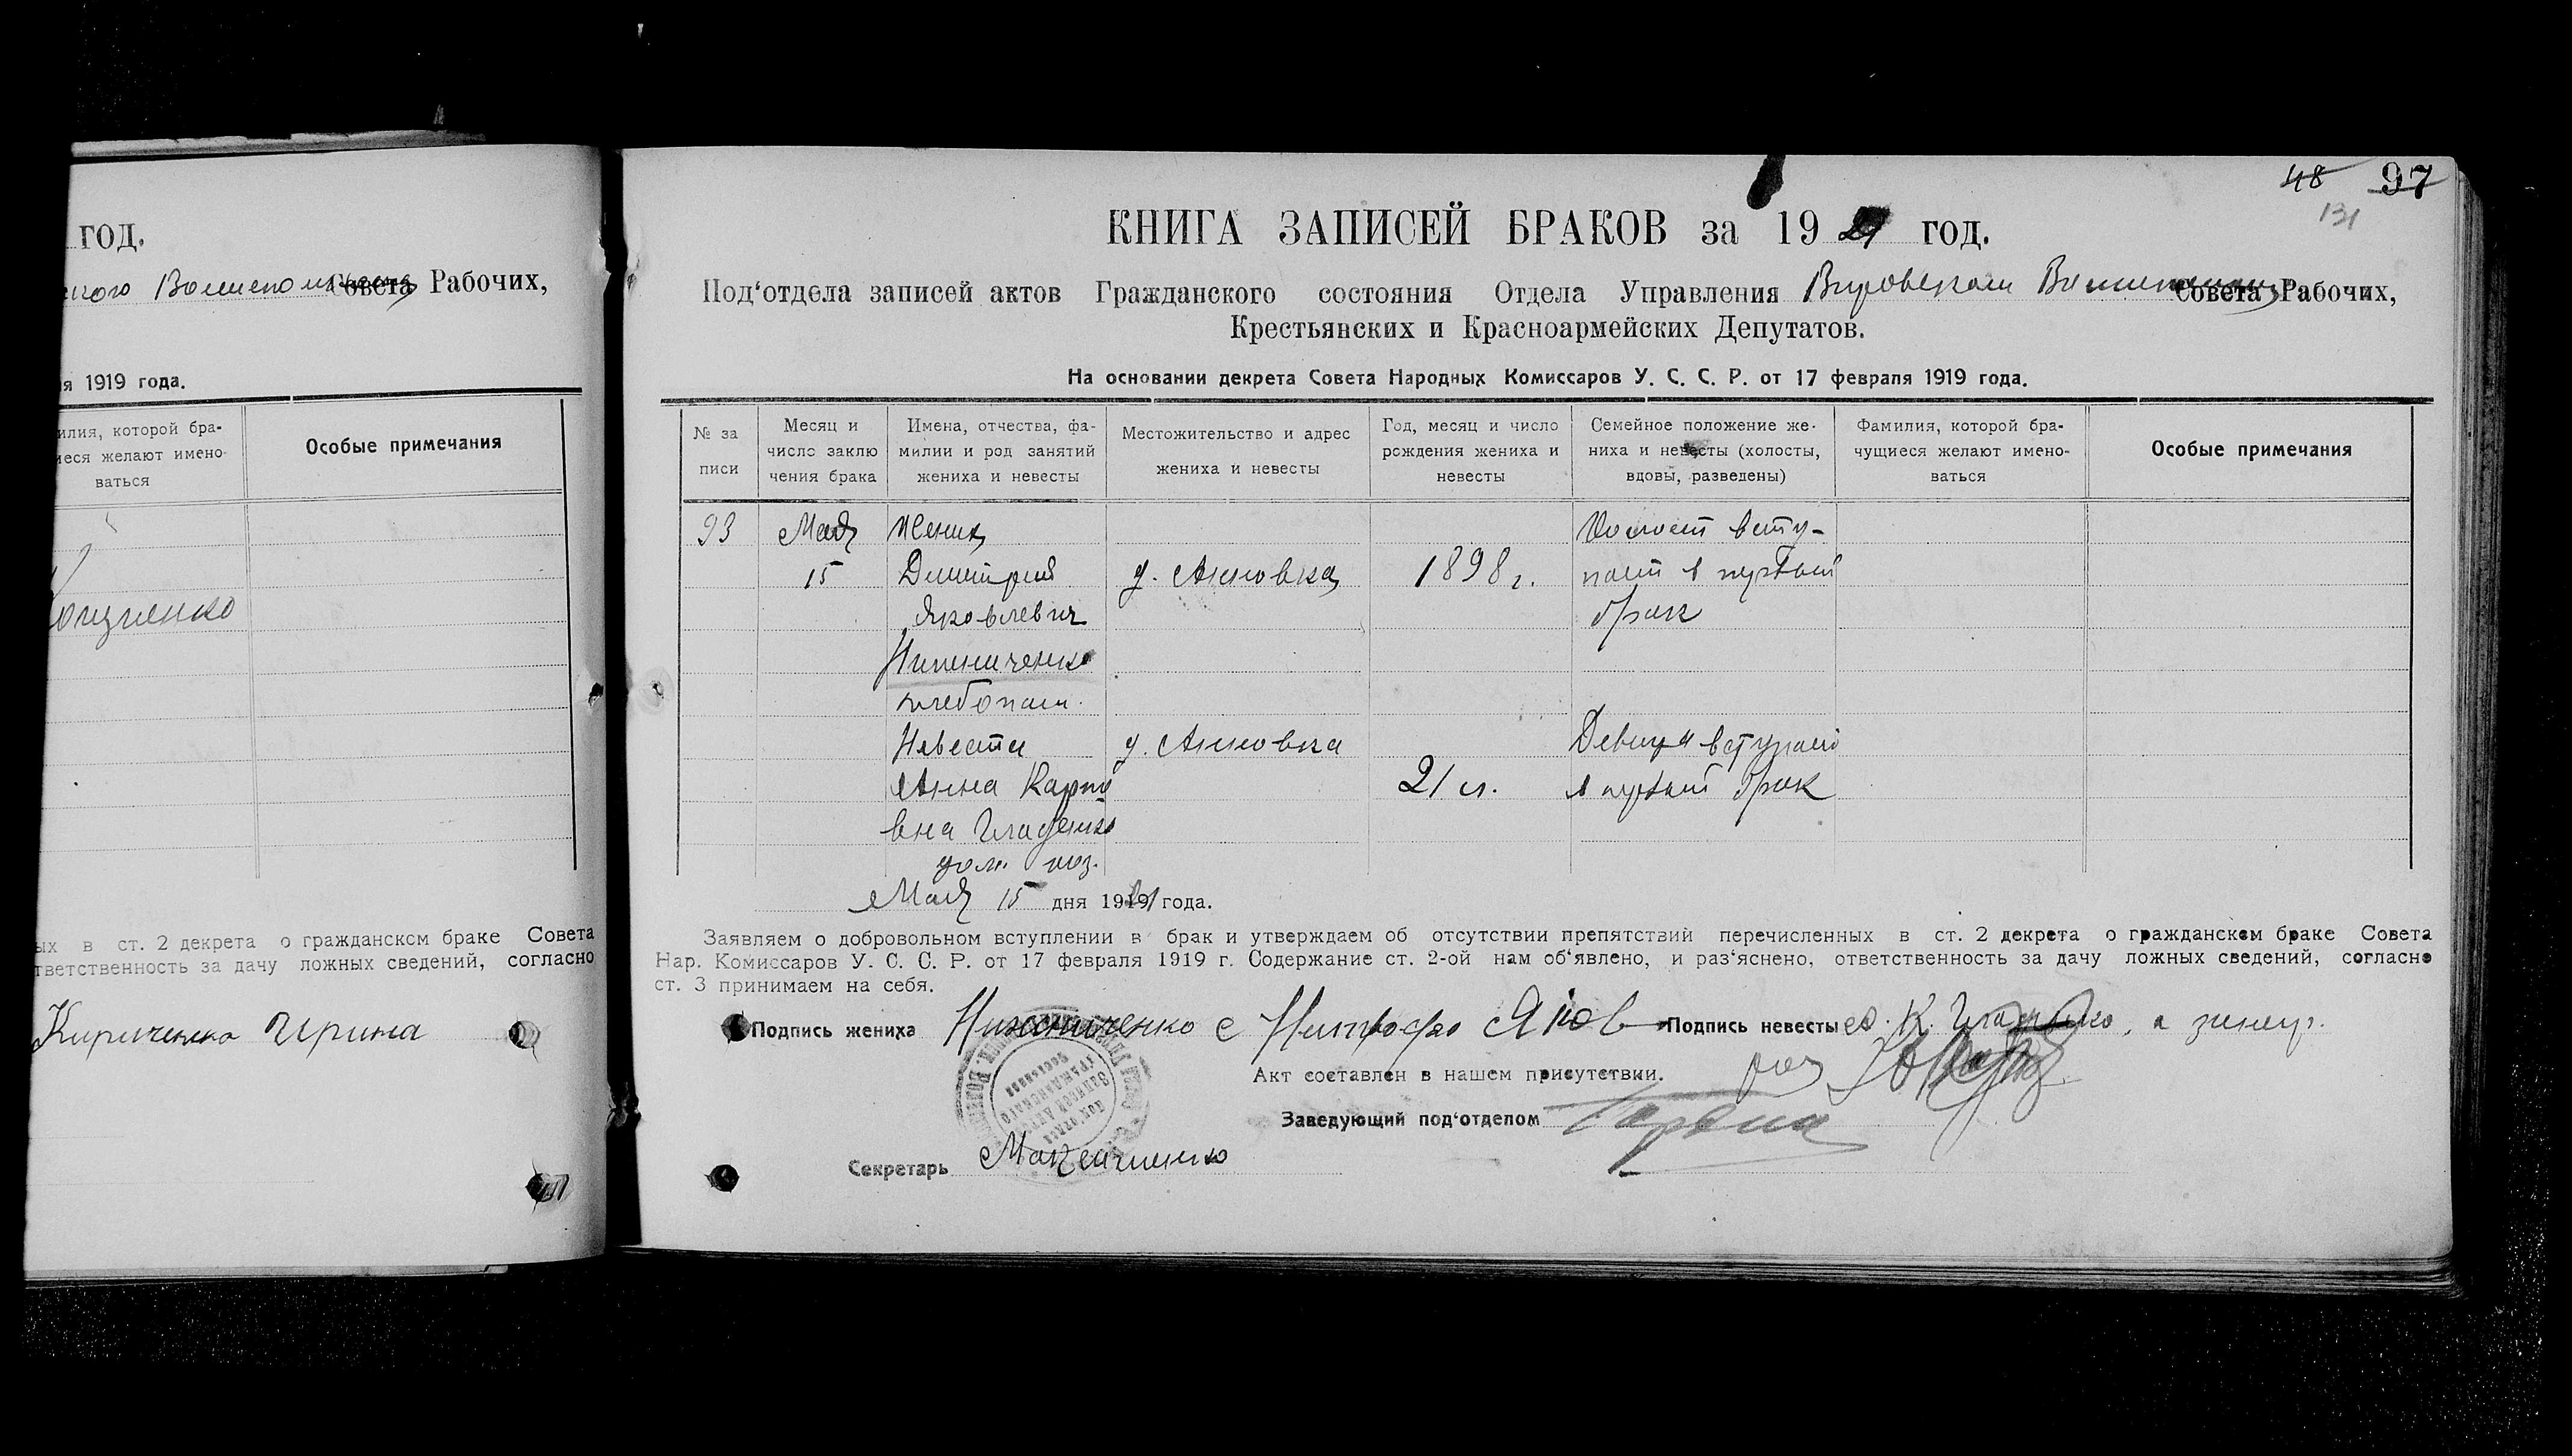 год.
Совета Рабочих,
я 1919 года.
илия, которой бра-
иеся желают имено-
ваться
Особые примечания
ых в ст. 2 декрета о гражданском браке Совета
тветственность за дачу ложных сведений, согласно
Кириченко Ирина
48 97
131
КНИГА ЗАПИСЕЙ БРАКОВ за 1921 год.
Под‘отдела записей актов Гражданского состояния Отдела Управления Совета Рабочих,
Крестьянских и Красноармейских Депутатов.
На основании декрета Совета Народных Комиссаров У. С. С. Р. от 17 февраля 1919 года.
№ за
писи
Месяц и
число заклю
чения брака
Имена, отчества, фа-
милии и род занятий
жениха и невесты
Местожительство и адрес
жениха и невесты
Год, месяц и число
рождения жениха и
невесты
Семейное положение же-
ниха и невесты (холосты,
вдовы, разведены)
Фамилия, которой бра-
чущиеся желают имено-
ваться
Особые примечания
93 Мая Жених Холост всту-
15 Димитрий д. Анновка 1898 г. пает в первый
Яковлевич брак
хлебопаш.
Невеста д. Анновка Девица вступает
Анна Карпо 21 л. в первый брак
вна Гладченко
дом. хоз.
Мая 15 дня 1921 года.
Заявляем о добровольном вступлении в брак и утверждаем об отсутствии препятствий перечисленных в ст. 2 декрета о гражданском браке Совета
Нар. Комиссаров У. С. С. Р. от 17 февраля 1919 г. Содержание ст. 2-ой нам об‘явлено, и раз‘яснено, ответственность за дачу ложных сведений, согласно
ст. 3 принимаем на себя.
Подпись жениха Подпись невесты
Акт составлен в нашем присутствии.
Заведующий под‘отделом
Секретарь